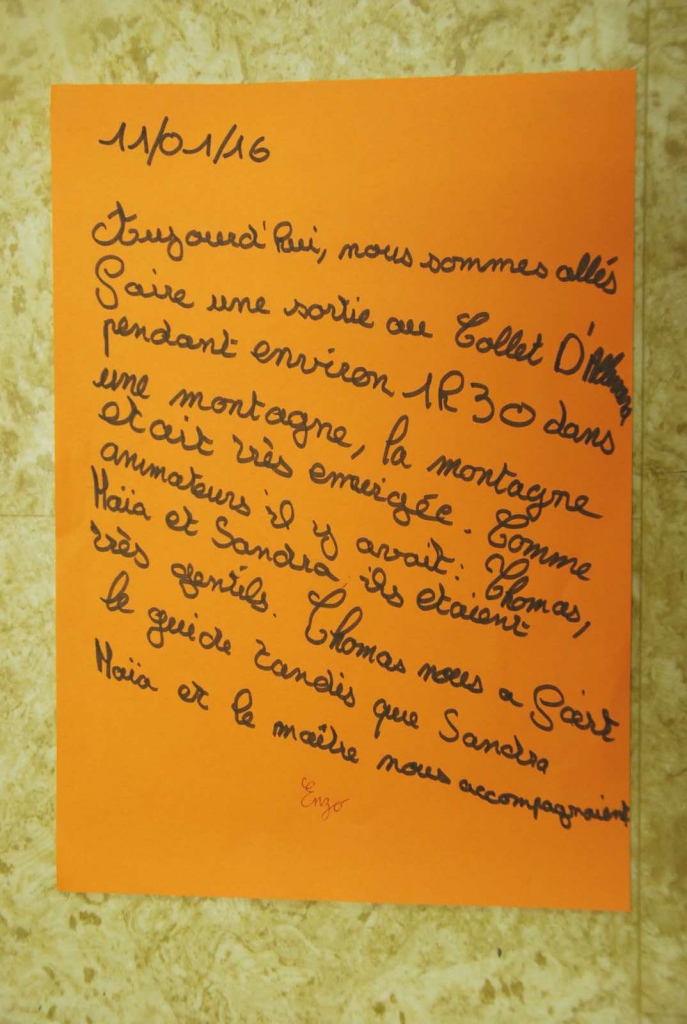 11/01/16
Aujourd'hui, nous sommes allés
faire une sortie au Collet D'Allevard
pendant environ 1h30 dans
une montagne, la montagne
etait très enneigée. Comme
animateurs il y avait : Thomas,
Maïa et Sandra ils etaient
très gentils. Thomas nous a fait
le guide tandis que Sandra
Maïa et le maître nous accompagnaient
Enzo